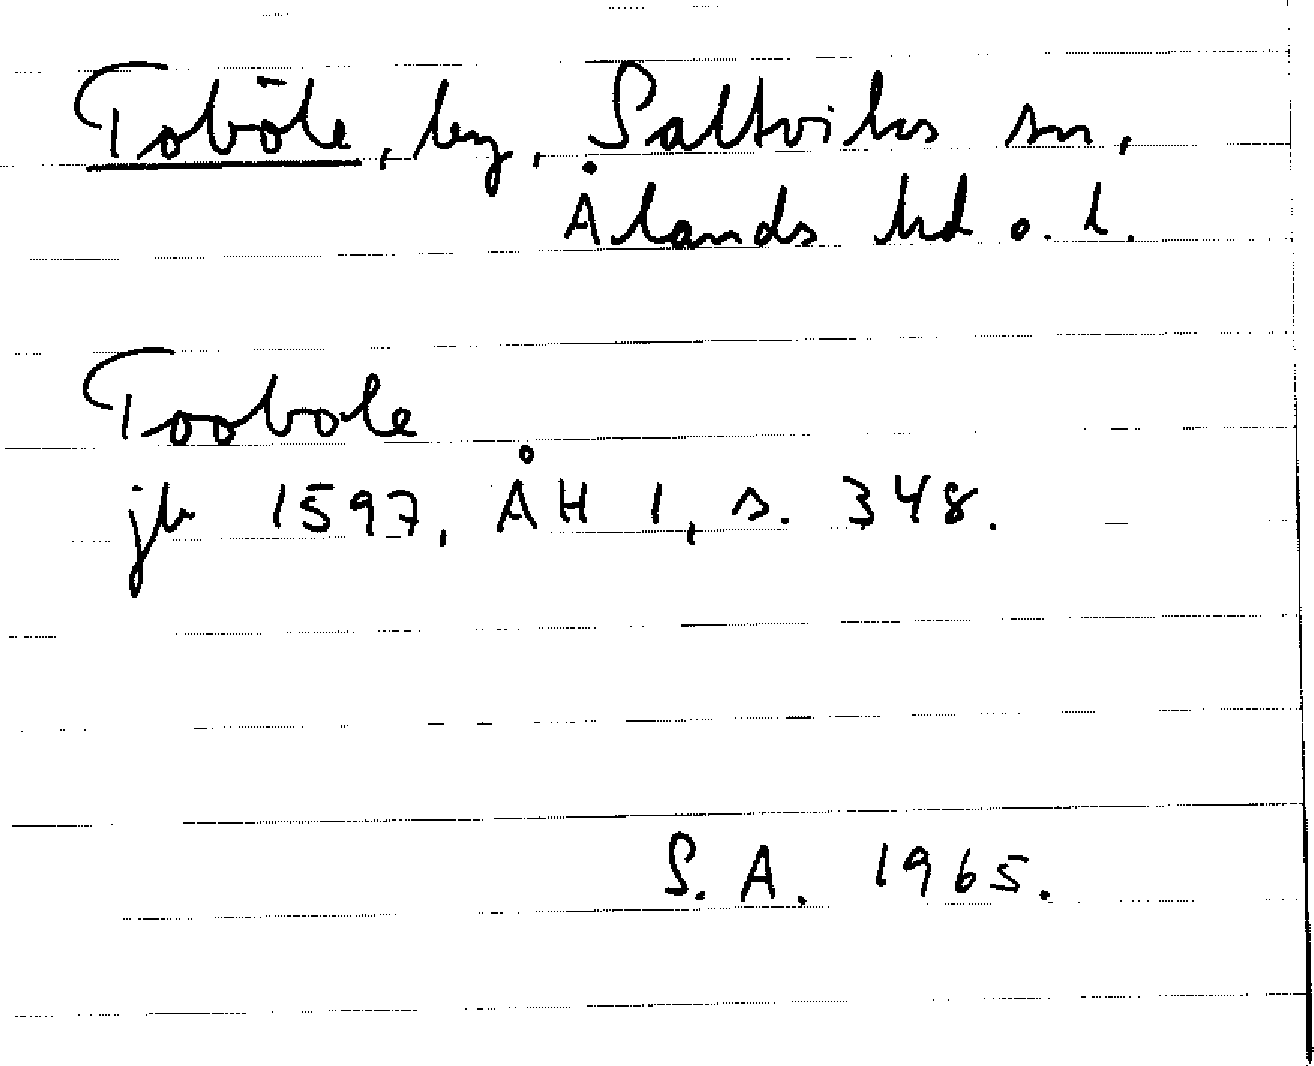 Toböle, by, Saltviks sn,
Ålands hd o. l.
Toobole
jb 1597, ÅH 1, s. 348.
S. A. 1965.